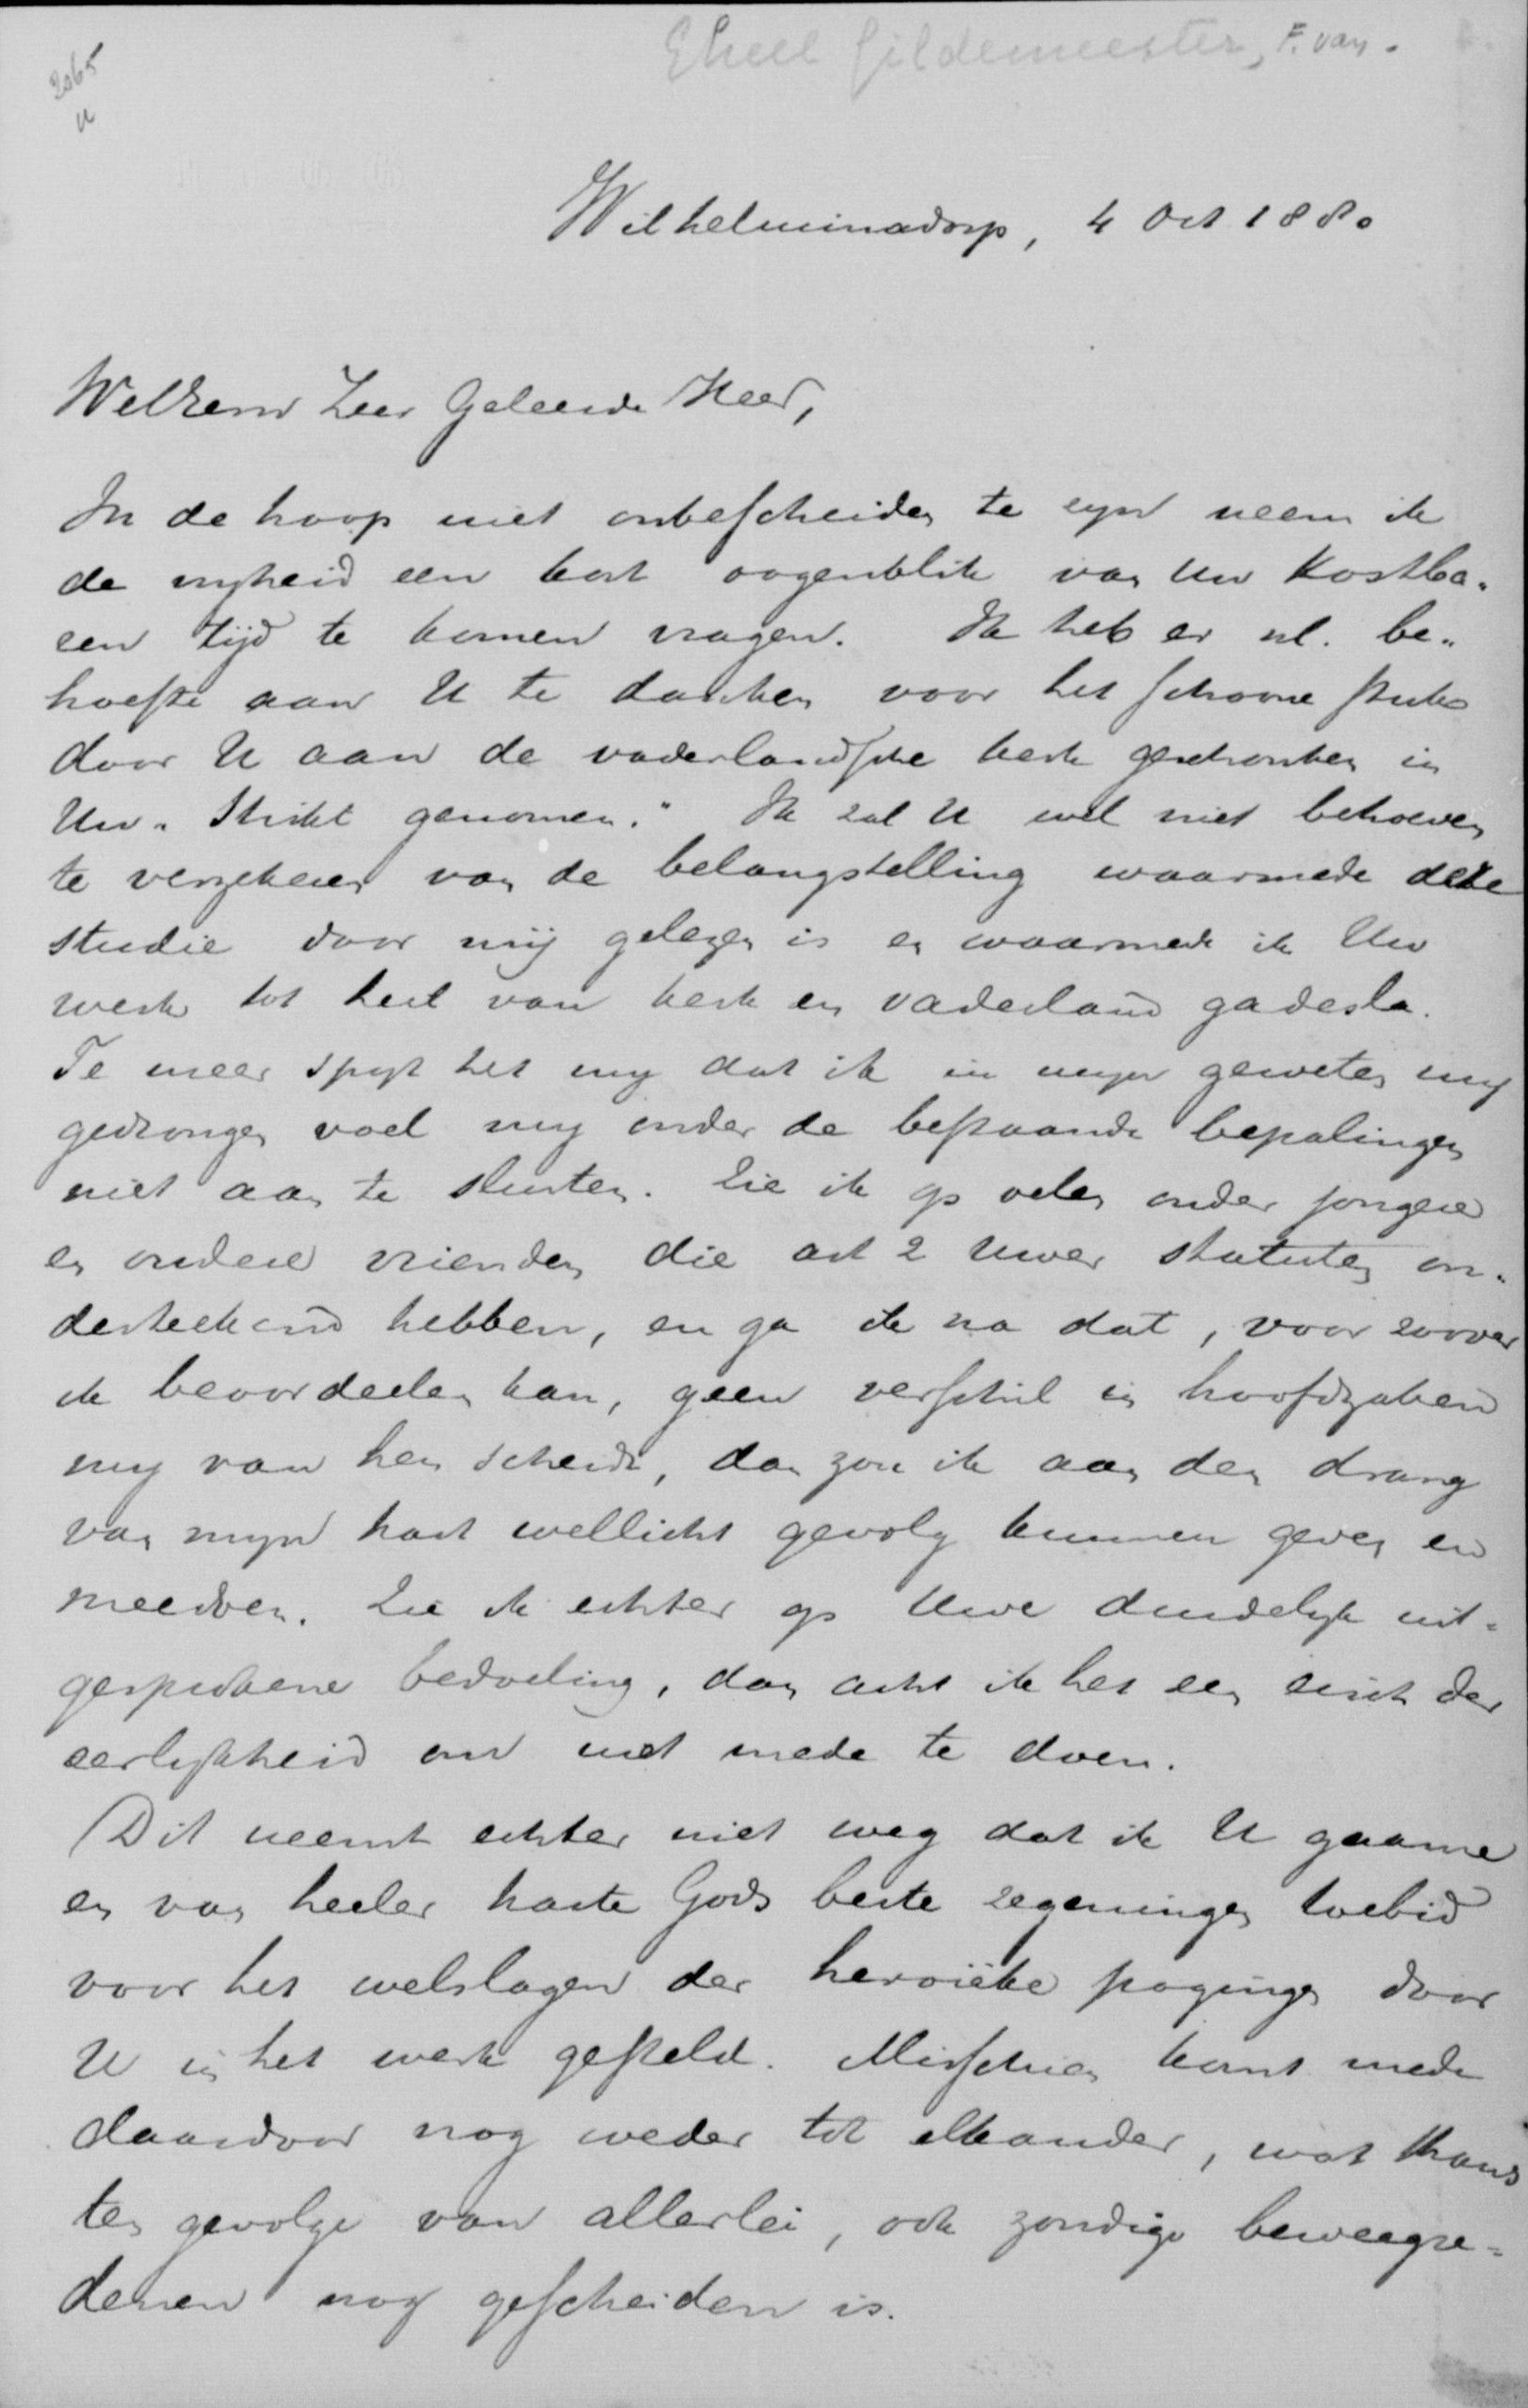 Gheel Gildemeester, F. van.
2065
u
Wilhelminadorp, 4 Oct 1880
WelEerw Zeer Geleerde Heer,
In de hoop niet onbescheiden te zyn neem ik
de vryheid een kort oogenblik van Uw kostba-
ren tijd te komen vragen. Ik heb er nl. be-
hoefte aan U te danken voor het schoone stuk
door U aan de vaderlandsche kerk geschonken in
Uw "Strikt genomen." Ik zal U wel niet behoeven
te verzekeren van de belangstelling waarmede deze
studie door mij gelezen is en waarmede ik Uw
werk tot heil van kerk en vaderland gadesla.
Te meer spyt het my dat ik in myn geweten my
gedrongen voel my onder de bestaande bepalingen
niet aan te sluiten. Zie ik op velen onder jongere
en oudere vrienden die art 2 Uwer statuten on-
derteekend hebben, en ga ik na dat, voor zoover
ik beoordeelen kan, geen verschil in hoofdzaken
my van hen scheidt, dan zou ik aan den drang
van myn hart wellicht gevolg kunnen geven en
meedoen. Zie ik echter op Uwe duidelyk uit-
gesprokene bedoeling, dan acht ik het een eisch der
eerlykheid om niet mede te doen.
Dit neemt echter niet weg dat ik U gaarne
en van heeler harte Gods beste zegeningen toebid
voor het welslagen der heroïeke pogingen door
U in het werk gesteld. Misschien komt mede
daardoor nog weder tot elkander, wat thans
ten gevolge van allerlei, ook zondige beweegre-
denen nog gescheiden is.